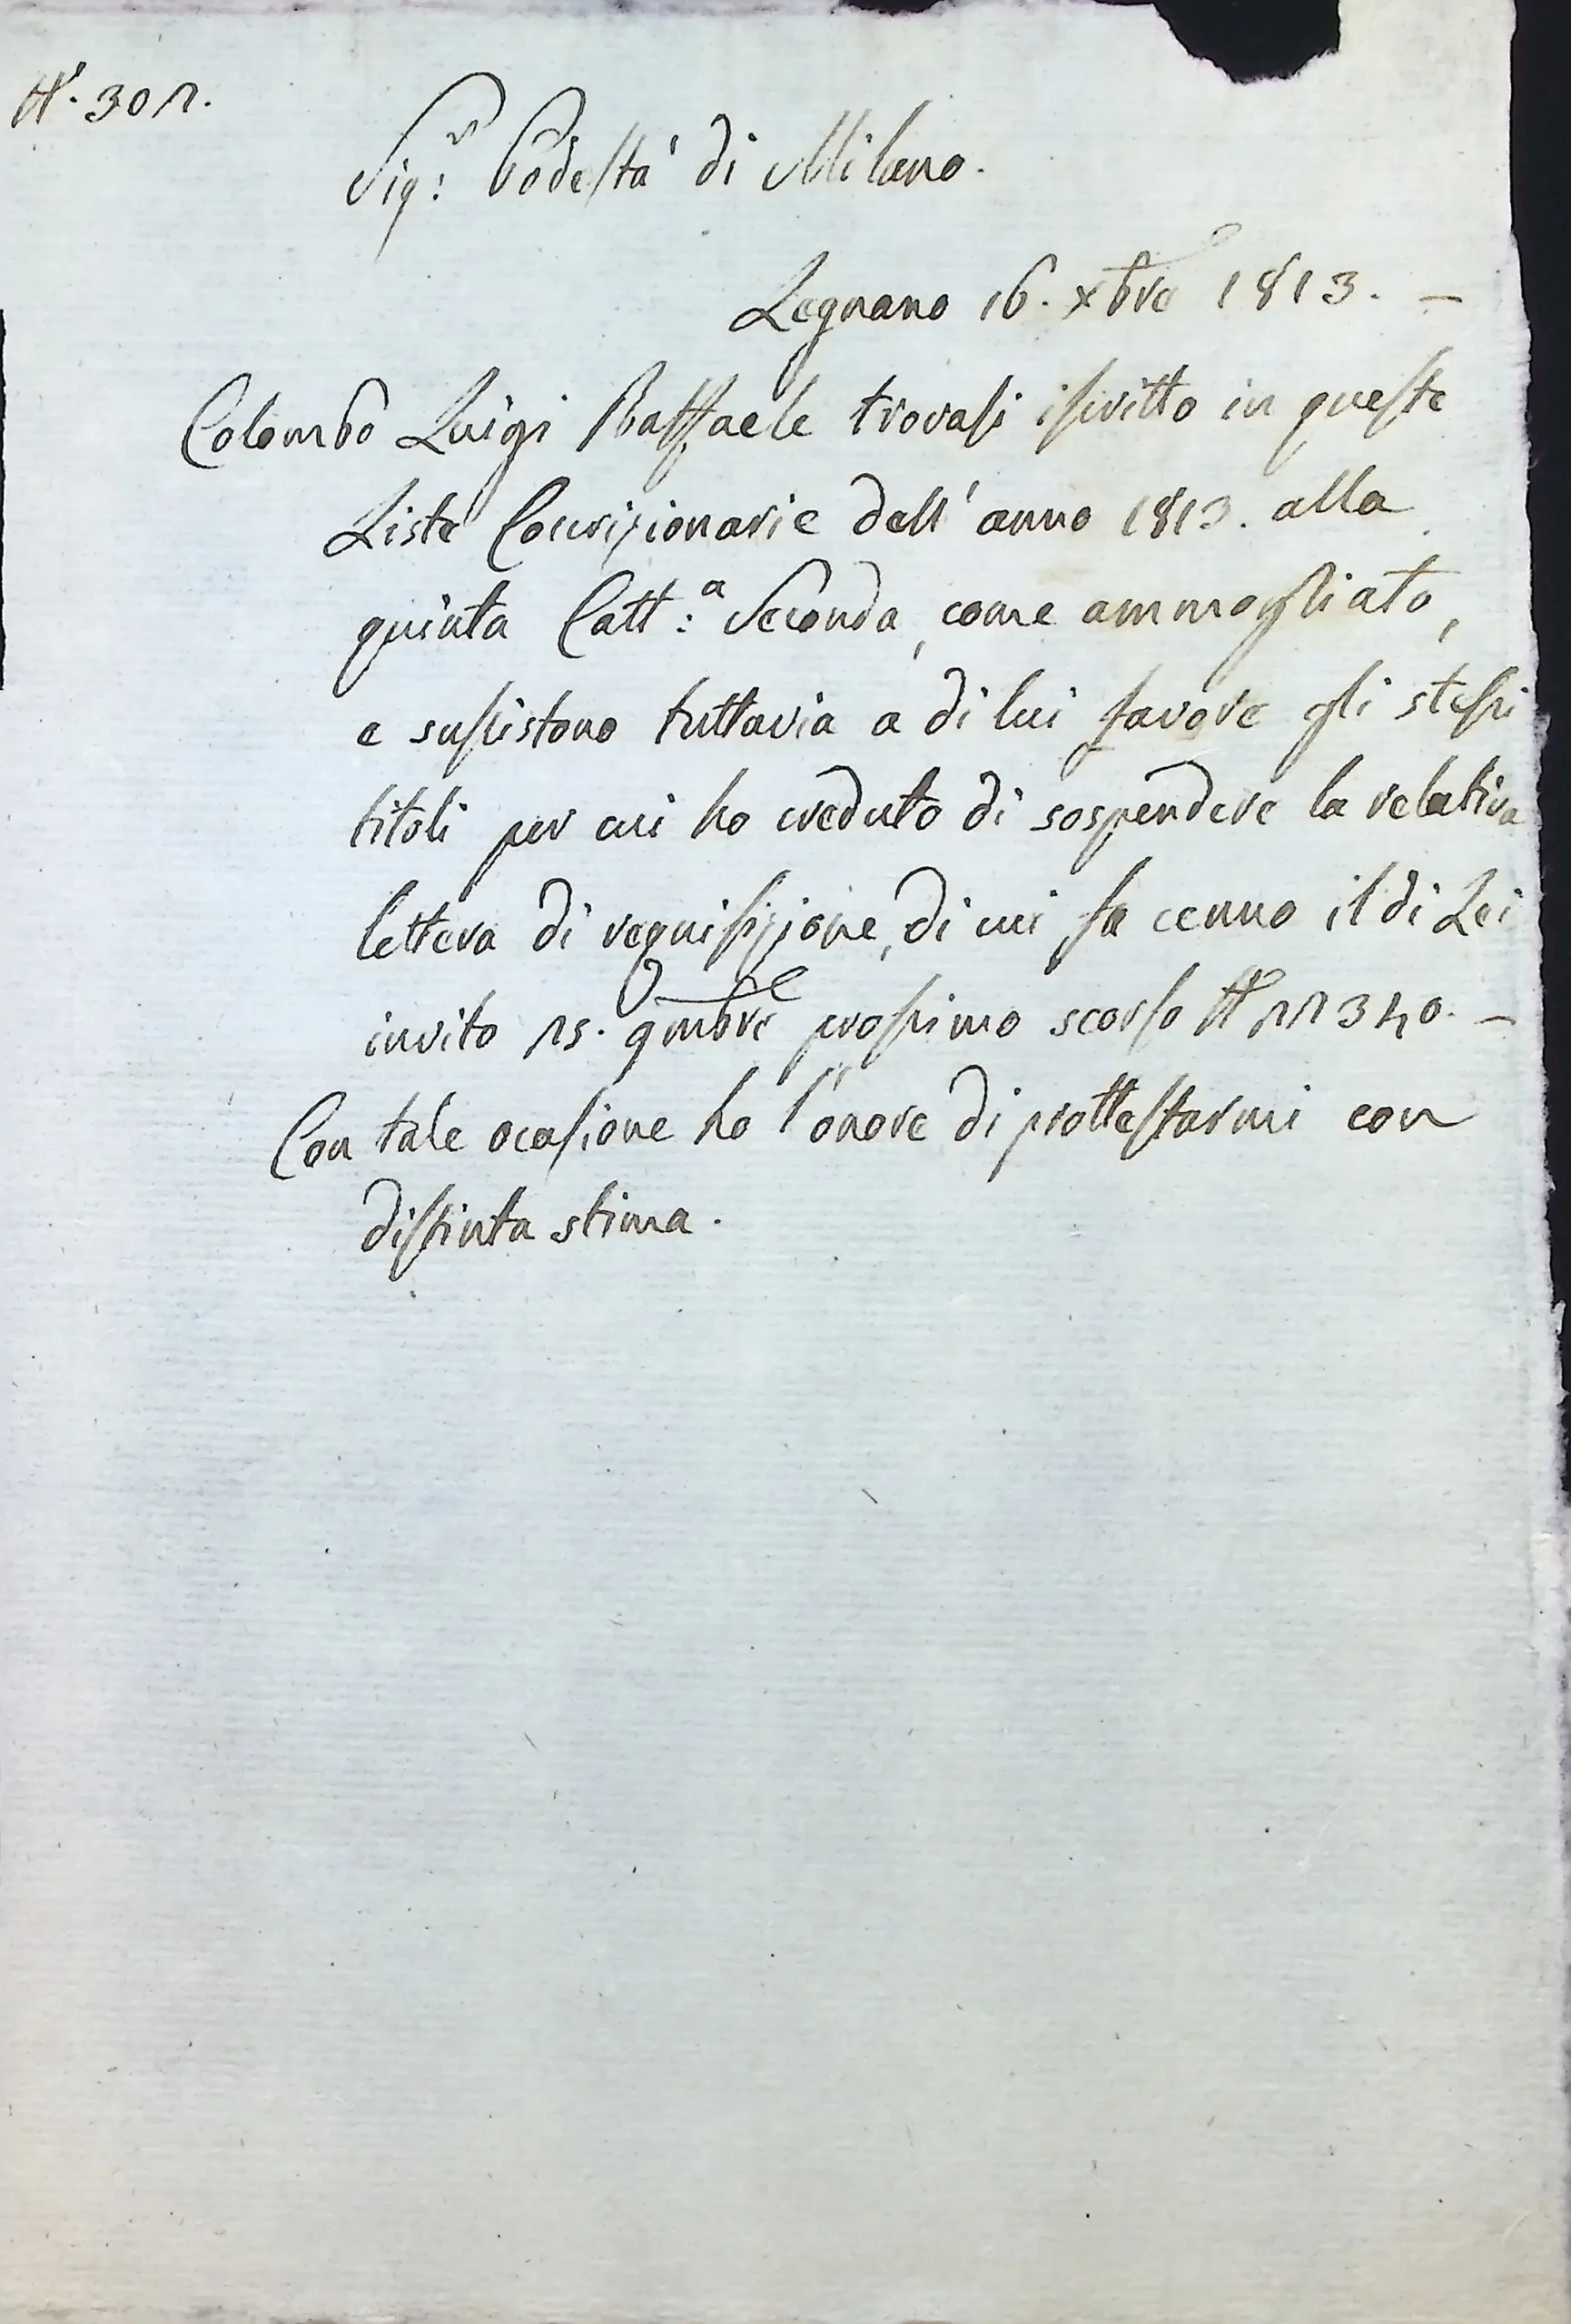 N.° 302.
Sig.r Podestà di Milano.
Legnano 16. xbre 1813. –
Colombo Luigi Raffaele trovasi iscritto in queste
Liste Coscrizionarie dell' anno 1813. alla
quinta Catt:a Seconda, come ammogliato,
e sussistono tuttavia a di lui favore gli stessi
titoli per cui ho creduto di sospendere la relativa
lettera di requisizione, di cui fa cenno il di Lei
invito 25. 9mbre prossimo scorso N.° 22340. –
Con tale ocasione ho l'onore di prottestarmi con
distinta stima.